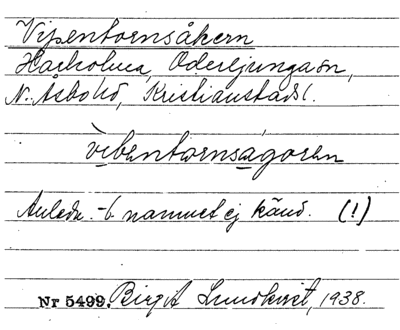 Vipentornsåkern
Harholma, Oderljungasn,
N. Åsbo hd, Kristianstads l.
vibentornsågoren
Anledn. t. namnet ej känd. (!)
Nr 5499. Birgit Lundkvist, 1938.